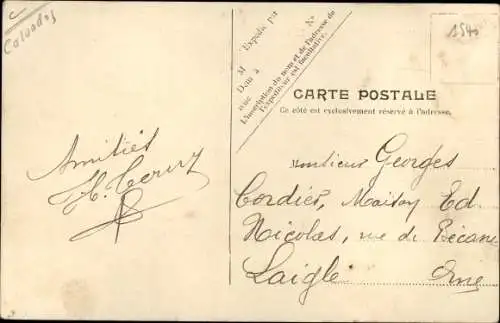 C
Calvados
M
Expédié par
N°
Dom à
rue
L'inscription du nom et de l'adresse de
l'expéditeur est facultative.
1540
CARTE POSTALE
Ce côté est exclusivement réservé à l'adresse.
Amitiés
Monsieur Georges
Cordier, Maison Ed
Nicolas, rue de
Laigle Orne